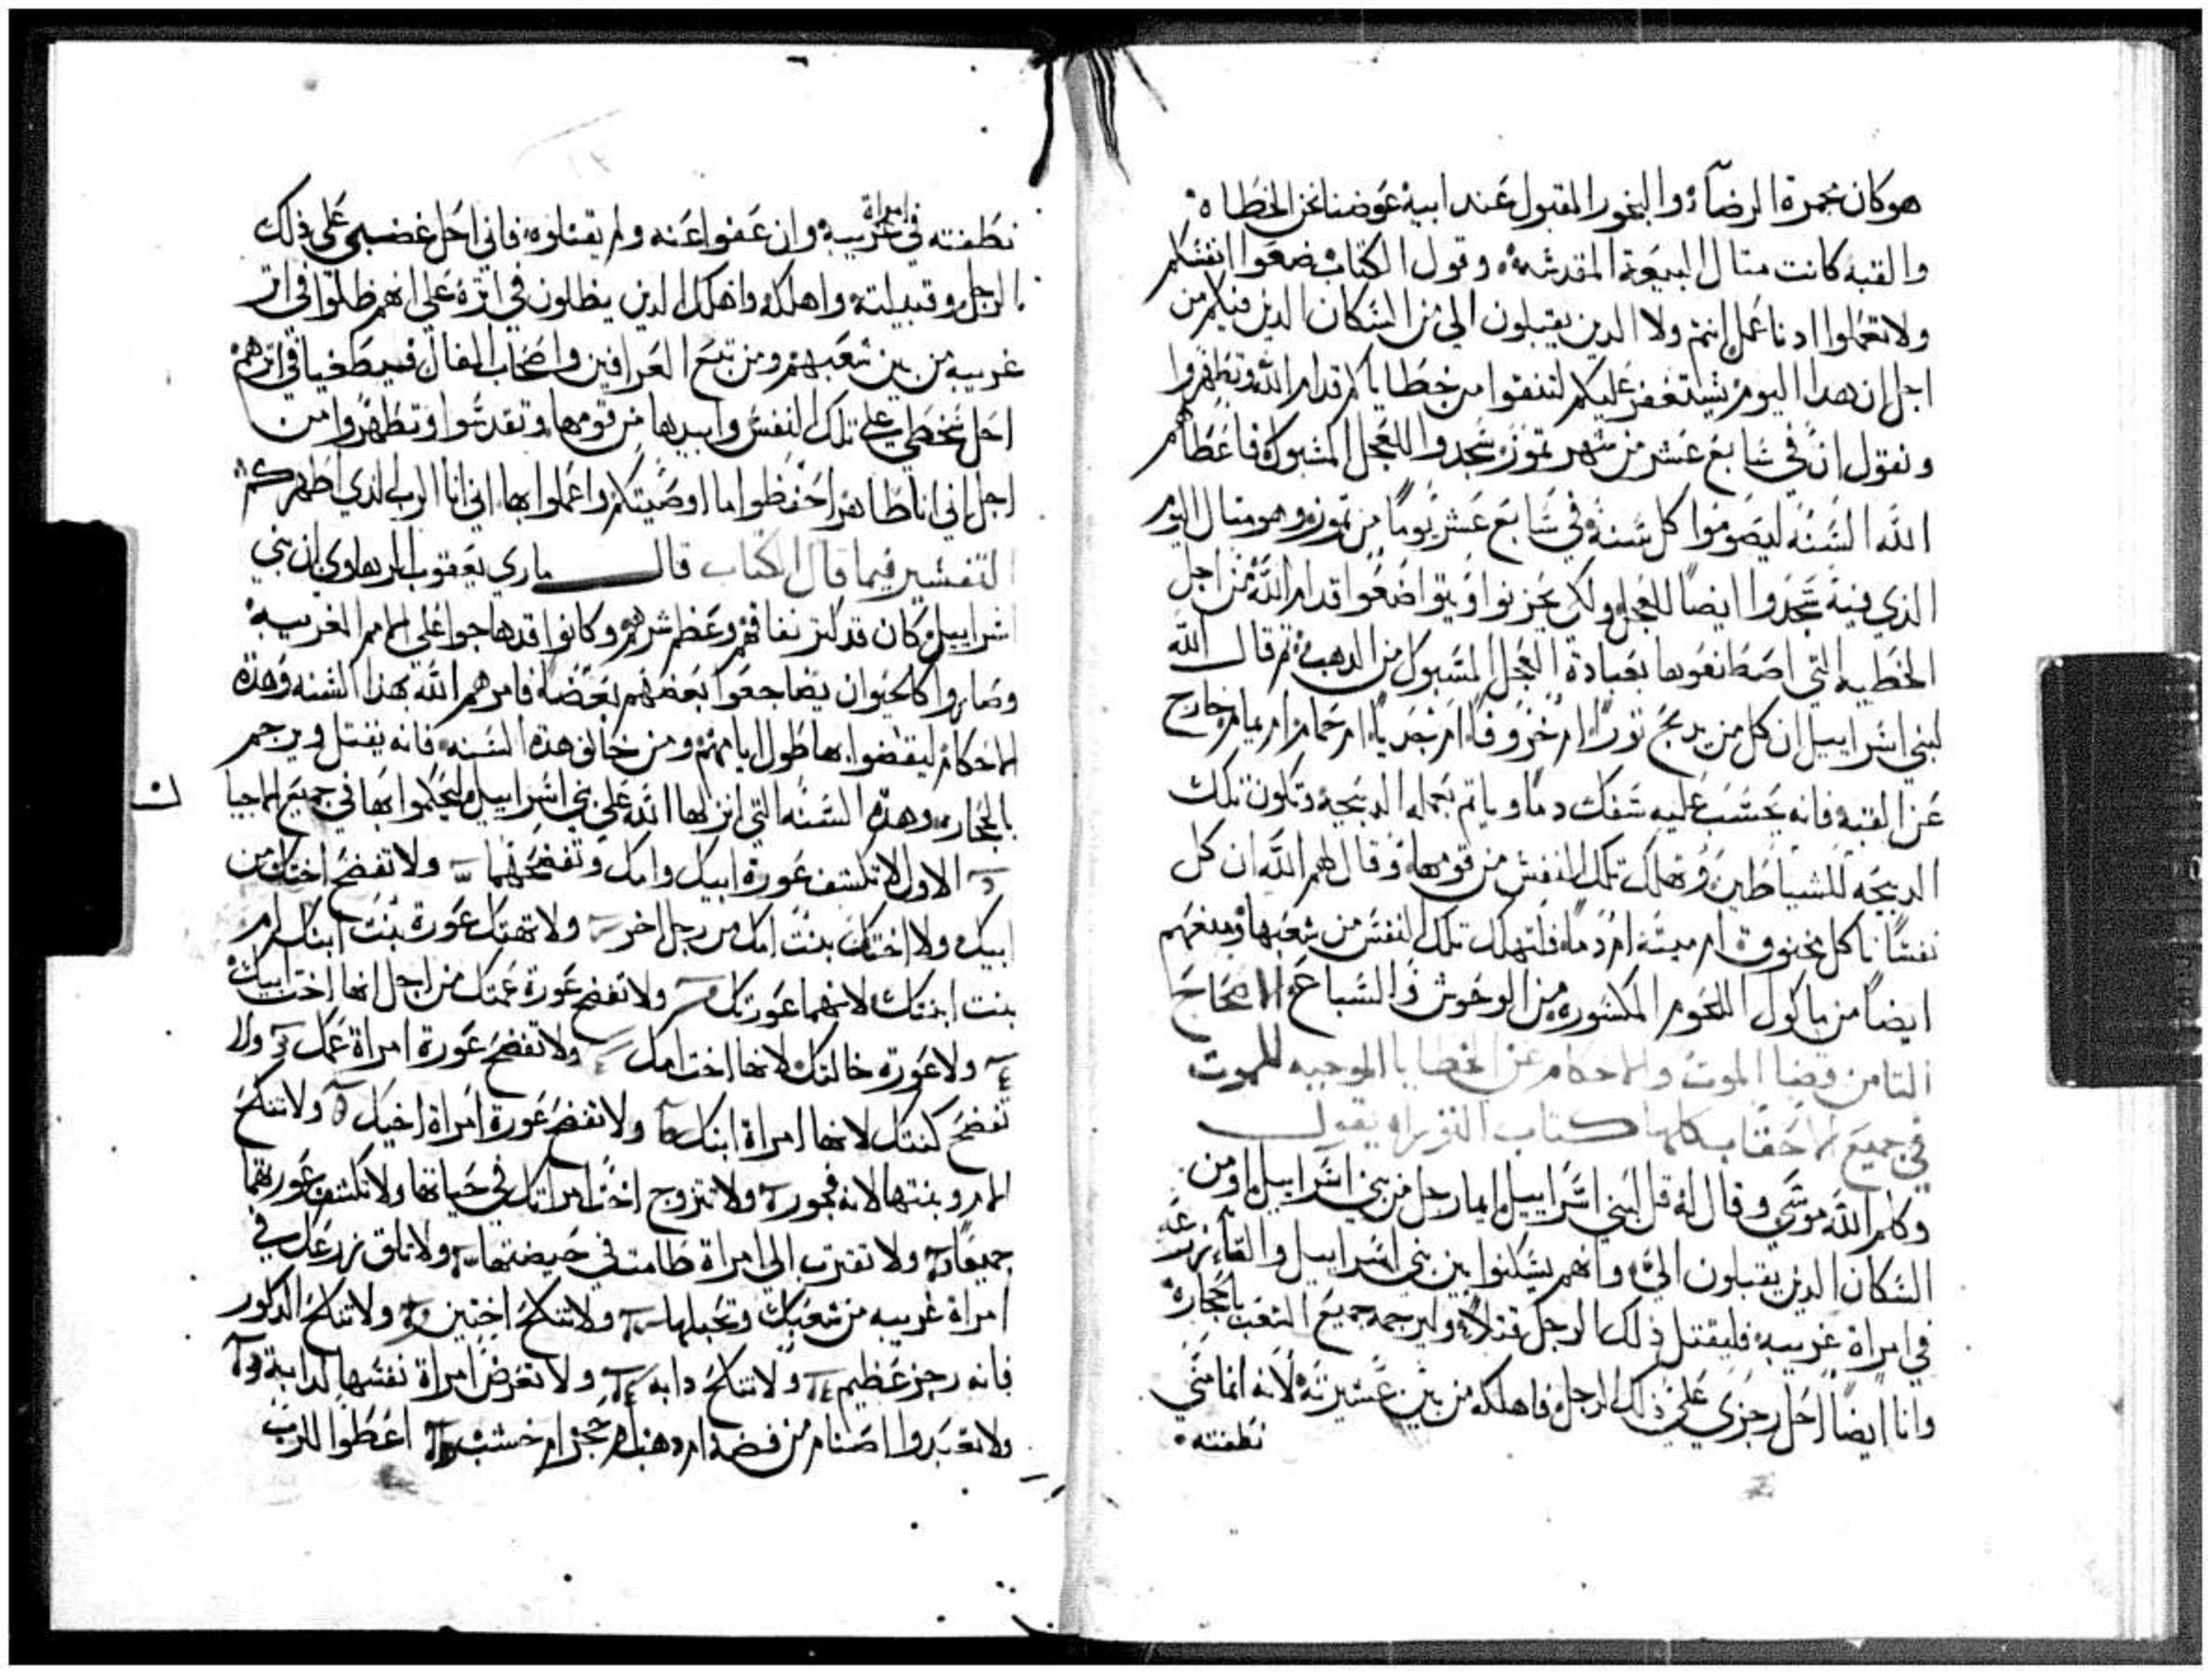 هو كان مجمرة الرضاء والبخور المقبول عند ابيه عوضنا نحن الخطاه
والقبه كانت مثال البيعة المقدسه وقول الكتاب ضعوا انفسكم
ولا تعملوا ادنا عمل انتم ولا الدين يقبلون الي من السكان الدين فيكم من
اجل ان هدا اليوم يستغفر عليكم لتنقوا من خطاياكم قدام الله وتطهروا
ونقول ان في سابع عشر من شهر تموز سجدوا للعجل المسبوك فاعطاهم
الله السنه ليصوموا كل سنه في سابع عشر يوماً من تموز وهو مثال اليوم
الذي فيه سجدوا ايضاً للعجل ولكي يحزنوا ويتواضعوا قدام الله من اجل
الخطيه التي اصطنعوها بعبادة العجل المسبوك من الدهب ثم قال الله
لبني اسراييل ان كل من يدبح توراً ام خروفاً ام جدياً ام حمام ام يمام خارج
عن القبه فانه يحسب عليه سفك دماً وياتم بعمله الدبيحه وتكون تلك
الدبيحه للشياطين وتهلك تلك النفس من قومها وقال لهم الله ان كل
نفساً تاكل مخنوقه ام ميته ام دماً فلتهلك تلك النفس من شعبها ومنعهم
ايضاً من ماكول اللحوم المكسوره من الوحوش والسباع الاصحاح
التامن قضا الموت والاحكام عن الخطايا الموجبه للموت
في جميع الاحقاب كلها كتاب التوراه يقول
وكلم الله موسي وقال له قل لبني اسراييل ايما رجل من بني اسراييل او من
السكان الدين يقبلون الي واهم يسكنوا بين بني اسراييل والقا زرعه
في امراة غريبه فليقتل ذلك الرجل قتلاً وليرجمه جميع الشعب بالحجاره
وانا ايضاً احل رجزي علي ذلك الرجل فاهلكه من بين عشيرته لانه انما مني
نطفته
نطفته في امراة غريبه وان عفوا عنه ولم يقتلوه فاني احل غضبي علي ذلك
الرجل وقبيلته واهلكه واهلك الدين يظلون في اتره علي انهم ظلوا في اتر
غريبه من بين شعبهم ومن تبع العرافين واصحاب الفال فيطغيا في اترهم
احل سخطي علي تلك النفس وابيدها من قومها وتقدسوا وتطهروا من
اجل اني انا طاهر احفظوا ما اوصيتكم واعملوا بها اني انا الرب الذي اطهركم
التفسير فيما قال الكتاب قال ماري يعقوب الرهاوي ان بني
اسراييل كان قد كتر نفاقهم وعظم شرهم وكانوا قد هاجوا علي الامم الغريبه
وصاروا كالحيوان يضاجعوا بعضهم بعضاً فامرهم الله بهذا السنه وهده
الاحكام ليقضوا بها طول ايامهم ومن خالف هده السنه فانه يقتل ويرجم
بالحجاره وهده السنه التي انزلها الله علي بني اسراييل ليحكموا بها في جميع الاجيا
ل
الاول لا تكشف عورة ابيك وامك وتفضحهما ولا تفضح اختك من
ابيك ولا اختك بنت امك من رجل اخر ولا تهتك عورة بنت ابنك ام
بنت ابنتك لانهما عورتك ولا تفضح عورة عمتك من اجل انها اخت ابيك
ولا عورة خالتك لانها اخت امك ولا تفضح عورة امراة عمك ولا
تفضح كنتك لانها امراة ابنك ولا تفضح عورة امراة اخيك ولا تنكح
الام وبنتها لانه فجور ولا تتزوج اخت امراتك في حياتها ولا تكشف عورتهما
جميعاً ولا تقترب الي امراة طامت في حيضتها ولا تلق زرعك في
امراة غريبه من شعبك وتحبلها ولا تنكح اختين ولا تنكح الدكور
فانه رجز عظيم ولا تنكح دابه ولا تعرض امراة نفسها لدابه
ولا تعبدوا اصنام من فضه ام دهب ام حجر ام خشب اعطوا للرب